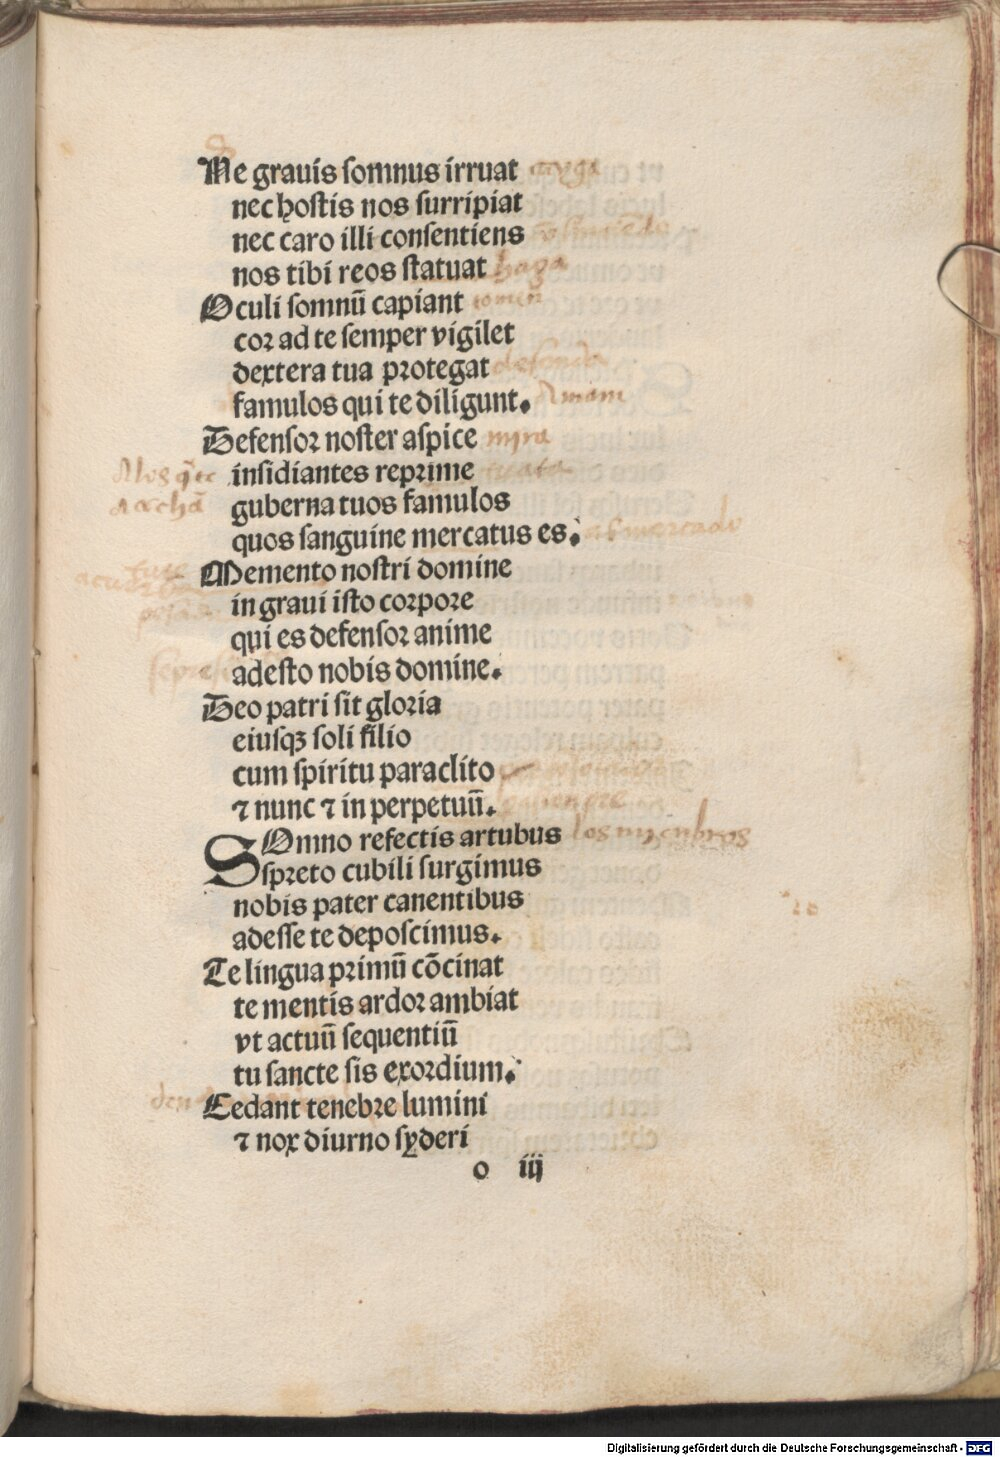 Ne grauis somnus irruat
nec hostis nos surripiat
nec caro illi consentiens
nos tibi reos statuat haga
Oculi somnū capiant
cor ad te semper vigilet
dextera tua protegat defenda
famulos qui te diligunt. Amam
Defensor noster aspice mira
insidiantes reprime
guberna tuos famulos
quos sanguine mercatus es. as mercado
Memento nostri domine
in graui isto corpore
qui es defensor anime
adesto nobis domine.
Deo patri sit gloria
eiusqꝫ soli filio
cum spiritu paraclito
⁊ nunc ⁊ in perpetuū.
SOmno refectis artubus los miembros
spreto cubili surgimus
nobis pater canentibus
adesse te deposcimus.
Te lingua primū cōcinat
te mentis ardor ambiat
vt actuū sequentiū
tu sancte sis exordium.
Cedant tenebre lumini
⁊ nox diurno syderi
o iij
Digitalisierung gefördert durch die Deutsche Forschungsgemeinschaft - DFG